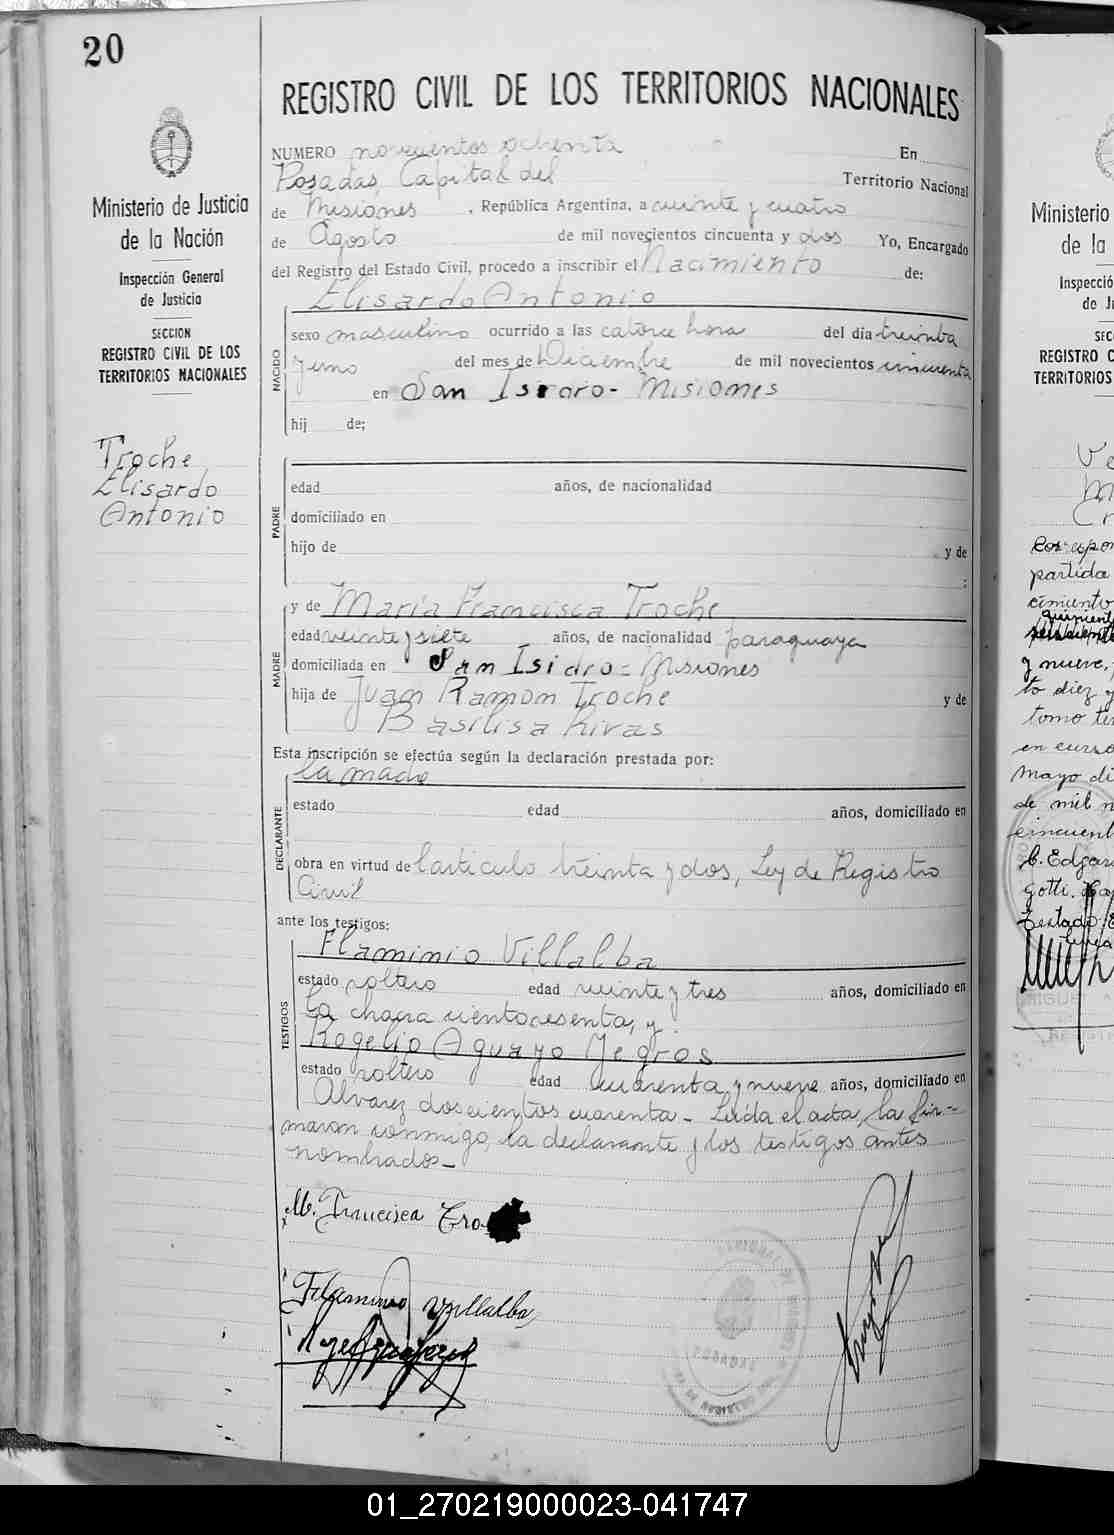 20
REGISTRO CIVIL DE LOS TERRITORIOS NACIONALES
Ministerio de Justicia
de la Nación
Inspección General
de Justicia
SECCION
REGISTRO CIVIL DE LOS
TERRITORIOS NACIONALES
Troche
Elisardo
Antonio
NUMERO novecientos ochenta En
Posadas, Capital del Territorio Nacional
de Misiones, República Argentina, a veinte y cuatro
de Agosto de mil novecientos cincuenta y dos Yo, Encargado
del Registro del Estado Civil, procedo a inscribir el Nacimiento de:
NACIDO
Elisardo Antonio
sexo masculino ocurrido a las catorce hora del día treinta
y uno del mes de Diciembre de mil novecientos cincuenta
en San Isidro - Misiones
hij de;
PADRE
edad años, de nacionalidad
domiciliado en
hijo de y de
:
MADRE
y de María Francisca Troche
edad veinte y siete años, de nacionalidad paraguaya
domiciliada en San Isidro - Misiones
hija de Juan Ramon Troche y de
Basilisa Rivas
Esta inscripción se efectúa según la declaración prestada por:
DECLARANTE
la madre
estado edad años, domiciliado en
obra en virtud de l'articulo treinta y dos, Ley de Registro
Civil
ante los testigos:
TESTIGOS
Flaminio Villalba
estado soltero edad veinte y tres años, domiciliado en
la chacra ciento sesenta, y
Rogelio Aguayo Yegros
estado soltero edad cuarenta y nueve años, domiciliado en
Alvarez doscientos cuarenta - Leida el acta, la fir-
maron conmigo, la declarante y los testigos antes
nombrados -
M. Francisca Tro
Flaminio Villalba
Ministerio
de la
Inspecció
de Ju
SEC
REGISTRO C
TERRITORIOS
Ve
Correspon
partida
cimiento
y nueve,
to diez y
tomo te
en curso
Mayo di
de mil n
cincuent
C. Edgar
gotti.
Testado:
01_270219000023-041747